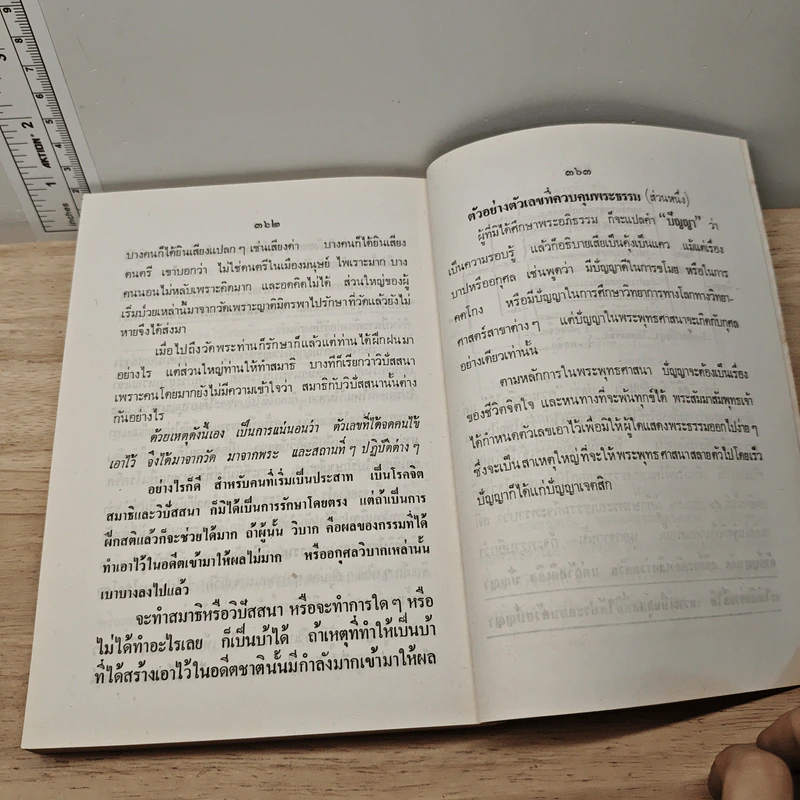 ๓๖๒
บางคนก็ได้ยินเสียงแปลก ๆ เช่นเสียงคำ บางคนก็ได้ยินเสียง
ดนตรี เขาบอกว่า ไม่ใช่ดนตรีในเมืองมนุษย์ ไพเราะมาก บาง
คนนอนไม่หลับเพราะคิดมาก และอดคิดไม่ได้ ส่วนใหญ่ของผู้
เริ่มป่วยเหล่านี้มาจากวัดเพราะญาติมิตรพาไปรักษาที่วัดแล้วยังไม่
หายจึงได้ส่งมา
เมื่อไปถึงวัดพระท่านก็รักษาก็แล้วแต่ท่านได้ฝึกฝนมา
อย่างไร แต่ส่วนใหญ่ท่านให้ทำสมาธิ บางทีก็เรียกว่าวิปัสสนา
เพราะคนโดยมากยังไม่มีความเข้าใจว่า สมาธิกับวิปัสสนานั้นต่าง
กันอย่างไร
ด้วยเหตุดังนี้เอง เป็นการแน่นอนว่า ตัวเลขที่ได้จดคนไข้
เอาไว้ จึงได้มาจากวัด มาจากพระ และสถานที่ ๆ ปฏิบัติต่าง ๆ
อย่างไรก็ดี สำหรับคนที่เริ่มเป็นประสาท เป็นโรคจิต
สมาธิและวิปัสสนา ก็มิได้เป็นการรักษาโดยตรง แต่ถ้าเป็นการ
ฝึกสติแล้วก็จะช่วยได้มาก ถ้าผู้นั้น วิบาก คือผลของกรรมที่ได้
ทำเอาไว้ในอดีตเข้ามาให้ผลไม่มาก หรืออกุศลวิบากเหล่านั้น
เบาบางลงไปแล้ว
จะทำสมาธิหรือวิปัสสนา หรือจะทำการใด ๆ หรือ
ไม่ได้ทำอะไรเลย ก็เป็นบ้าได้ ถ้าเหตุที่ทำให้เป็นบ้า
ที่ได้สร้างเอาไว้ในอดีตชาตินั้นมีกำลังมากเข้ามาให้ผล
๓๖๓
ตัวอย่างตัวเลขที่ควบคุมพระธรรม (ส่วนหนึ่ง)
ผู้ที่มิได้ศึกษาพระอภิธรรม ก็จะแปลคำ “ปัญญา” ว่า
เป็นความรอบรู้ แล้วก็อธิบายเสียเป็นคุ้งเป็นแคว แม้แต่เรื่อง
บาปหรืออกุศล เช่นพูดว่า มีปัญญาดีในการขโมย หรือในการ
คดโกง หรือมีปัญญาในการศึกษาวิทยาการทางโลกทางวิทยา-
ศาสตร์สาขาต่าง ๆ แต่ปัญญาในพระพุทธศาสนาจะเกิดกับกุศล
อย่างเดียวเท่านั้น
ตามหลักการในพระพุทธศาสนา ปัญญาจะต้องเป็นเรื่อง
ของชีวิตจิตใจ และหนทางที่จะพ้นทุกข์ได้ พระสัมมาสัมพุทธเจ้า
ได้กำหนดตัวเลขเอาไว้เพื่อมิให้ผู้ใดแสดงพระธรรมออกไปง่าย ๆ
ซึ่งจะเป็นสาเหตุใหญ่ที่จะให้พระพุทธศาสนาสลายตัวไปโดยเร็ว
ปัญญาก็ได้แก่ปัญญาเจตสิก
INCHES
1
2
3
AKTION
6
7
8
9